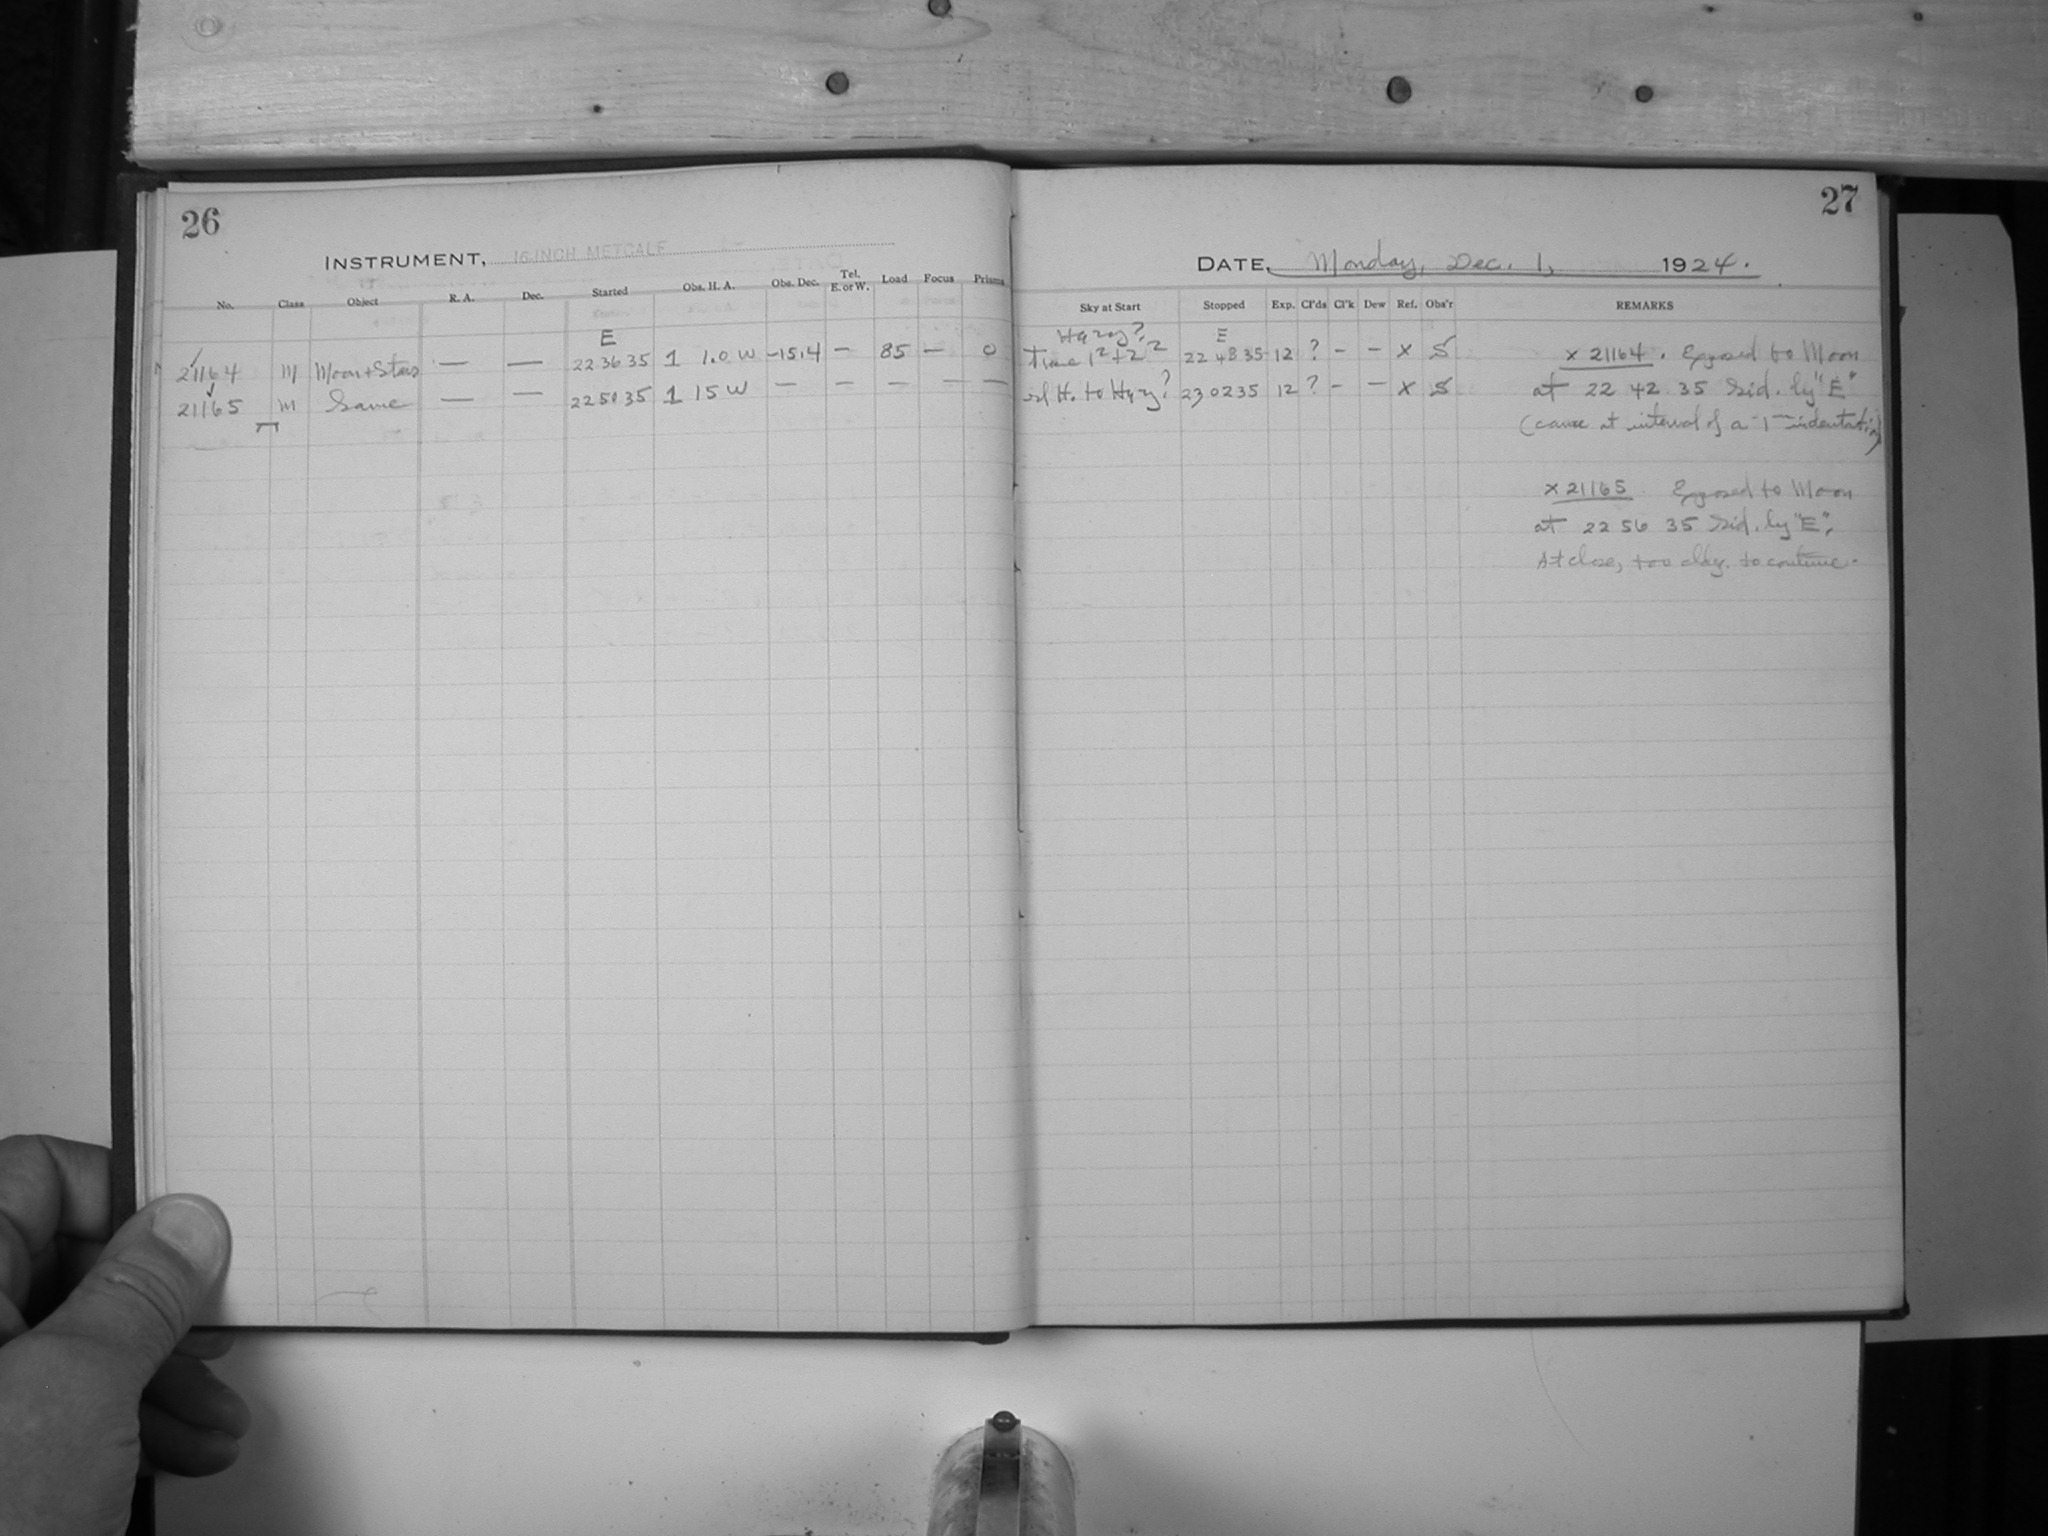 26
INSTRUMENT, 16-INCH METCALF
No. Class Object R. A. Dec. Started Obs. H. A. Obs. Dec. Tel. E. or W. Load Focus Prisms
E
21164 M Moon+Stars — — 22 36 35 1 1.0 W -15.4 — 85 — 0
21165 M Same — — 22 50 35 1 15 W — — — — —
27
DATE, Monday, Dec. 1, 1924.
Sky at Start Stopped Exp. Cl'ds Cl'k Dew Ref. Obs'r REMARKS
Hazy? E
22 48 35 12 ? - - x S x 21164. Exposed to Moon
H. to Hazy? 23 02 35 12 ? - - x S at 22 42 35 Sid. by "E"
(came at interval of a 1m indentation)
x 21165 Exposed to Moon
at 22 56 35 Sid. by "E".
At close, too cldy. to continue.